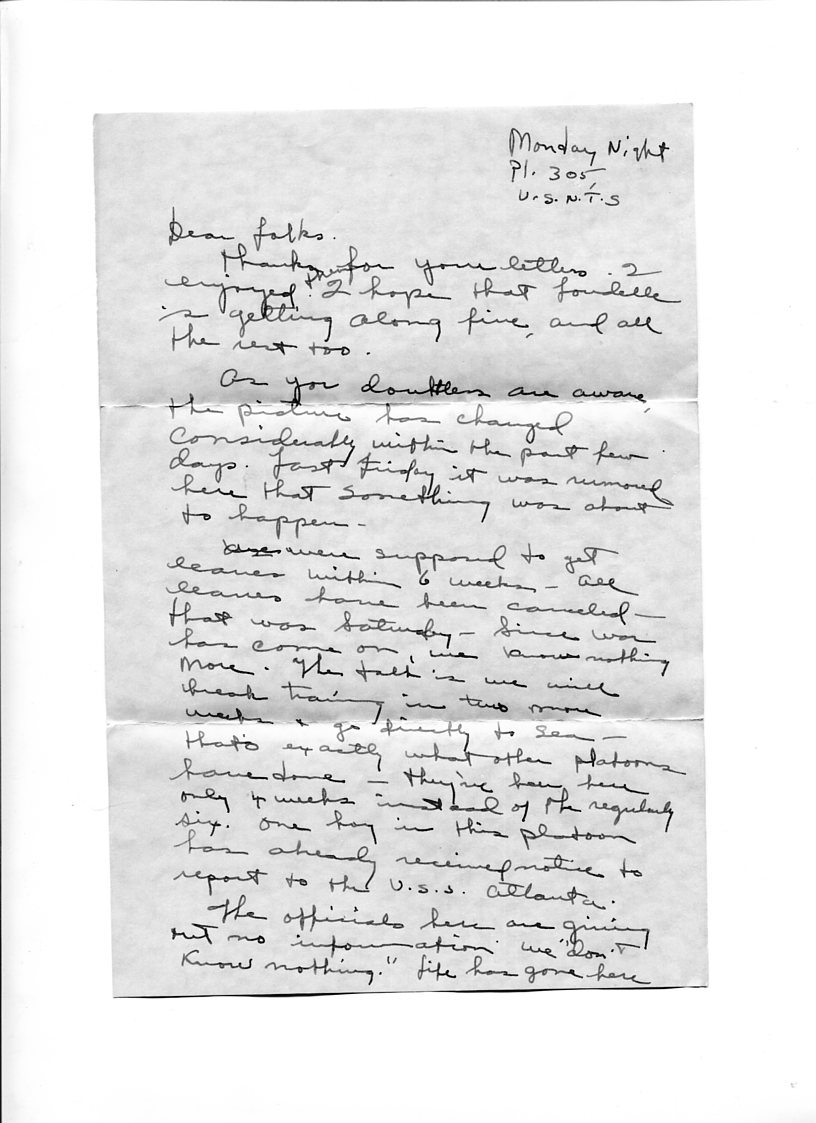 Monday Night
Pl. 305
U.S.N.T.S
Dear folks.
Thanks for your letters. I
enjoyed them. I hope that Loudelle
is getting along fine, and all
the rest too.
As you doubtless are aware,
the picture has changed
considerably within the past few
days. Last Friday it was rumored
here that something was about
to happen -
were supposed to get
leaves within 6 weeks - All
leaves have been canceled -
that was Saturday - Since war
has come on, we know nothing
more. The talk is we will
break training in two more
weeks & go directly to sea -
that's exactly what other platoons
have done - they've been here
only 4 weeks instead of the regularly
six. One boy in this platoon
has already received notice to
report to the U.S.S. Atlanta.
The officials here are giving
out no information we "don't
know nothing." Life has gone here